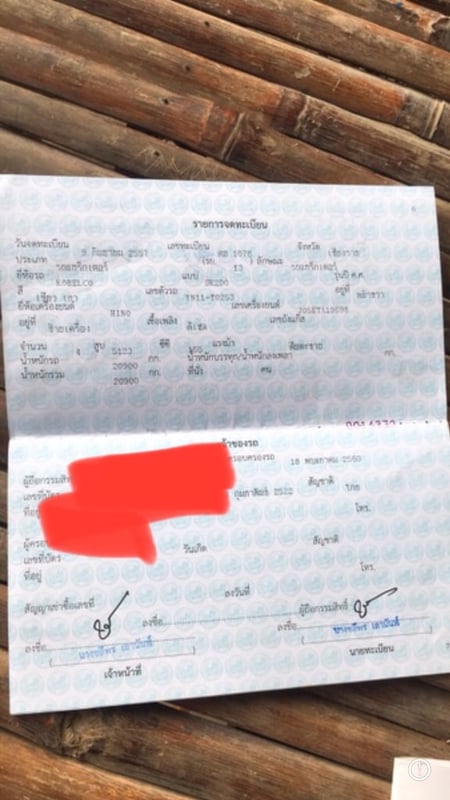 6
รายการจดทะเบียน
วันจดทะเบียน 9 กันยายน 2557 เลขทะเบียน ตฮ 1076 จังหวัด เชียงราย
ประเภท รถแทร็กเตอร์ (รย. 13 ) ลักษณะ รถแทร็กเตอร์
ยี่ห้อรถ KOBELCO แบบ SK200 รุ่นปี ค.ศ.
สี เขียว (ฯ) เลขตัวรถ YN11-T0253 อยู่ที่
ยี่ห้อเครื่องยนต์ HINO เลขเครื่องยนต์
อยู่ที่ ซ้ายเครื่อง เชื้อเพลิง ดีเซล เลขถังแก๊ส
จำนวน 4 สูบ 5123 ซีซี แรงม้า
น้ำหนักรถ 20900 กก. น้ำหนักบรรทุก/น้ำหนักลงเพลา กก.
น้ำหนักรวม 20900 กก. ที่นั่ง คน
เจ้าของรถ
ครอบครองรถ 18 พฤษภาคม 2560
ผู้ถือกรรมสิทธิ์
เลขที่บัตร กุมภาพันธ์ 2522 สัญชาติ ไทย
ที่อยู่ โทร.
ผู้ครอ
เลขที่บัตร วันเกิด สัญชาติ
ที่อยู่ โทร.
สัญญาเช่าซื้อเลขที่ ลงวันที่ ผู้ถือกรรมสิทธิ์
ลงชื่อ ลงชื่อ ลงชื่อ
เจ้าหน้าที่ นายทะเบียน